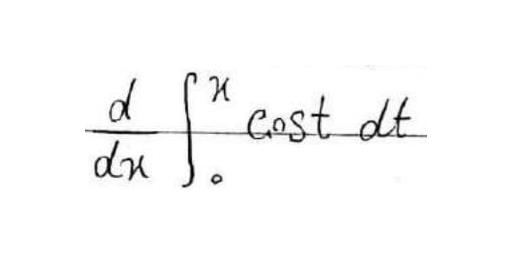 d/dx ∫₀ˣ cost dt